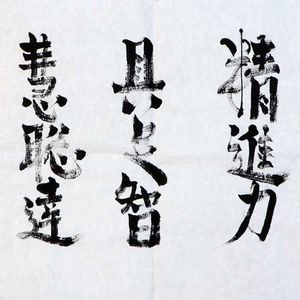 精進力
具足智
慧聡達